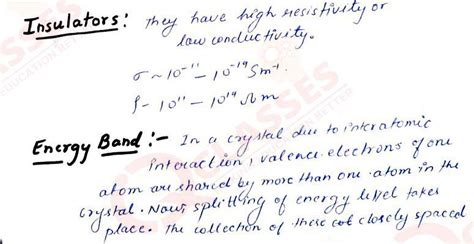 Insulators: They have high resistivity or
low conductivity.
σ ~ 10⁻¹¹ – 10⁻¹⁹ Sm⁻¹
ρ – 10¹¹ – 10¹⁹ Ωm
Energy Band :- In a crystal due to interatomic
interaction, valence electrons of one
atom are shared by more than one atom in the
crystal. Now splitting of energy level takes
place. The collection of these closely spaced